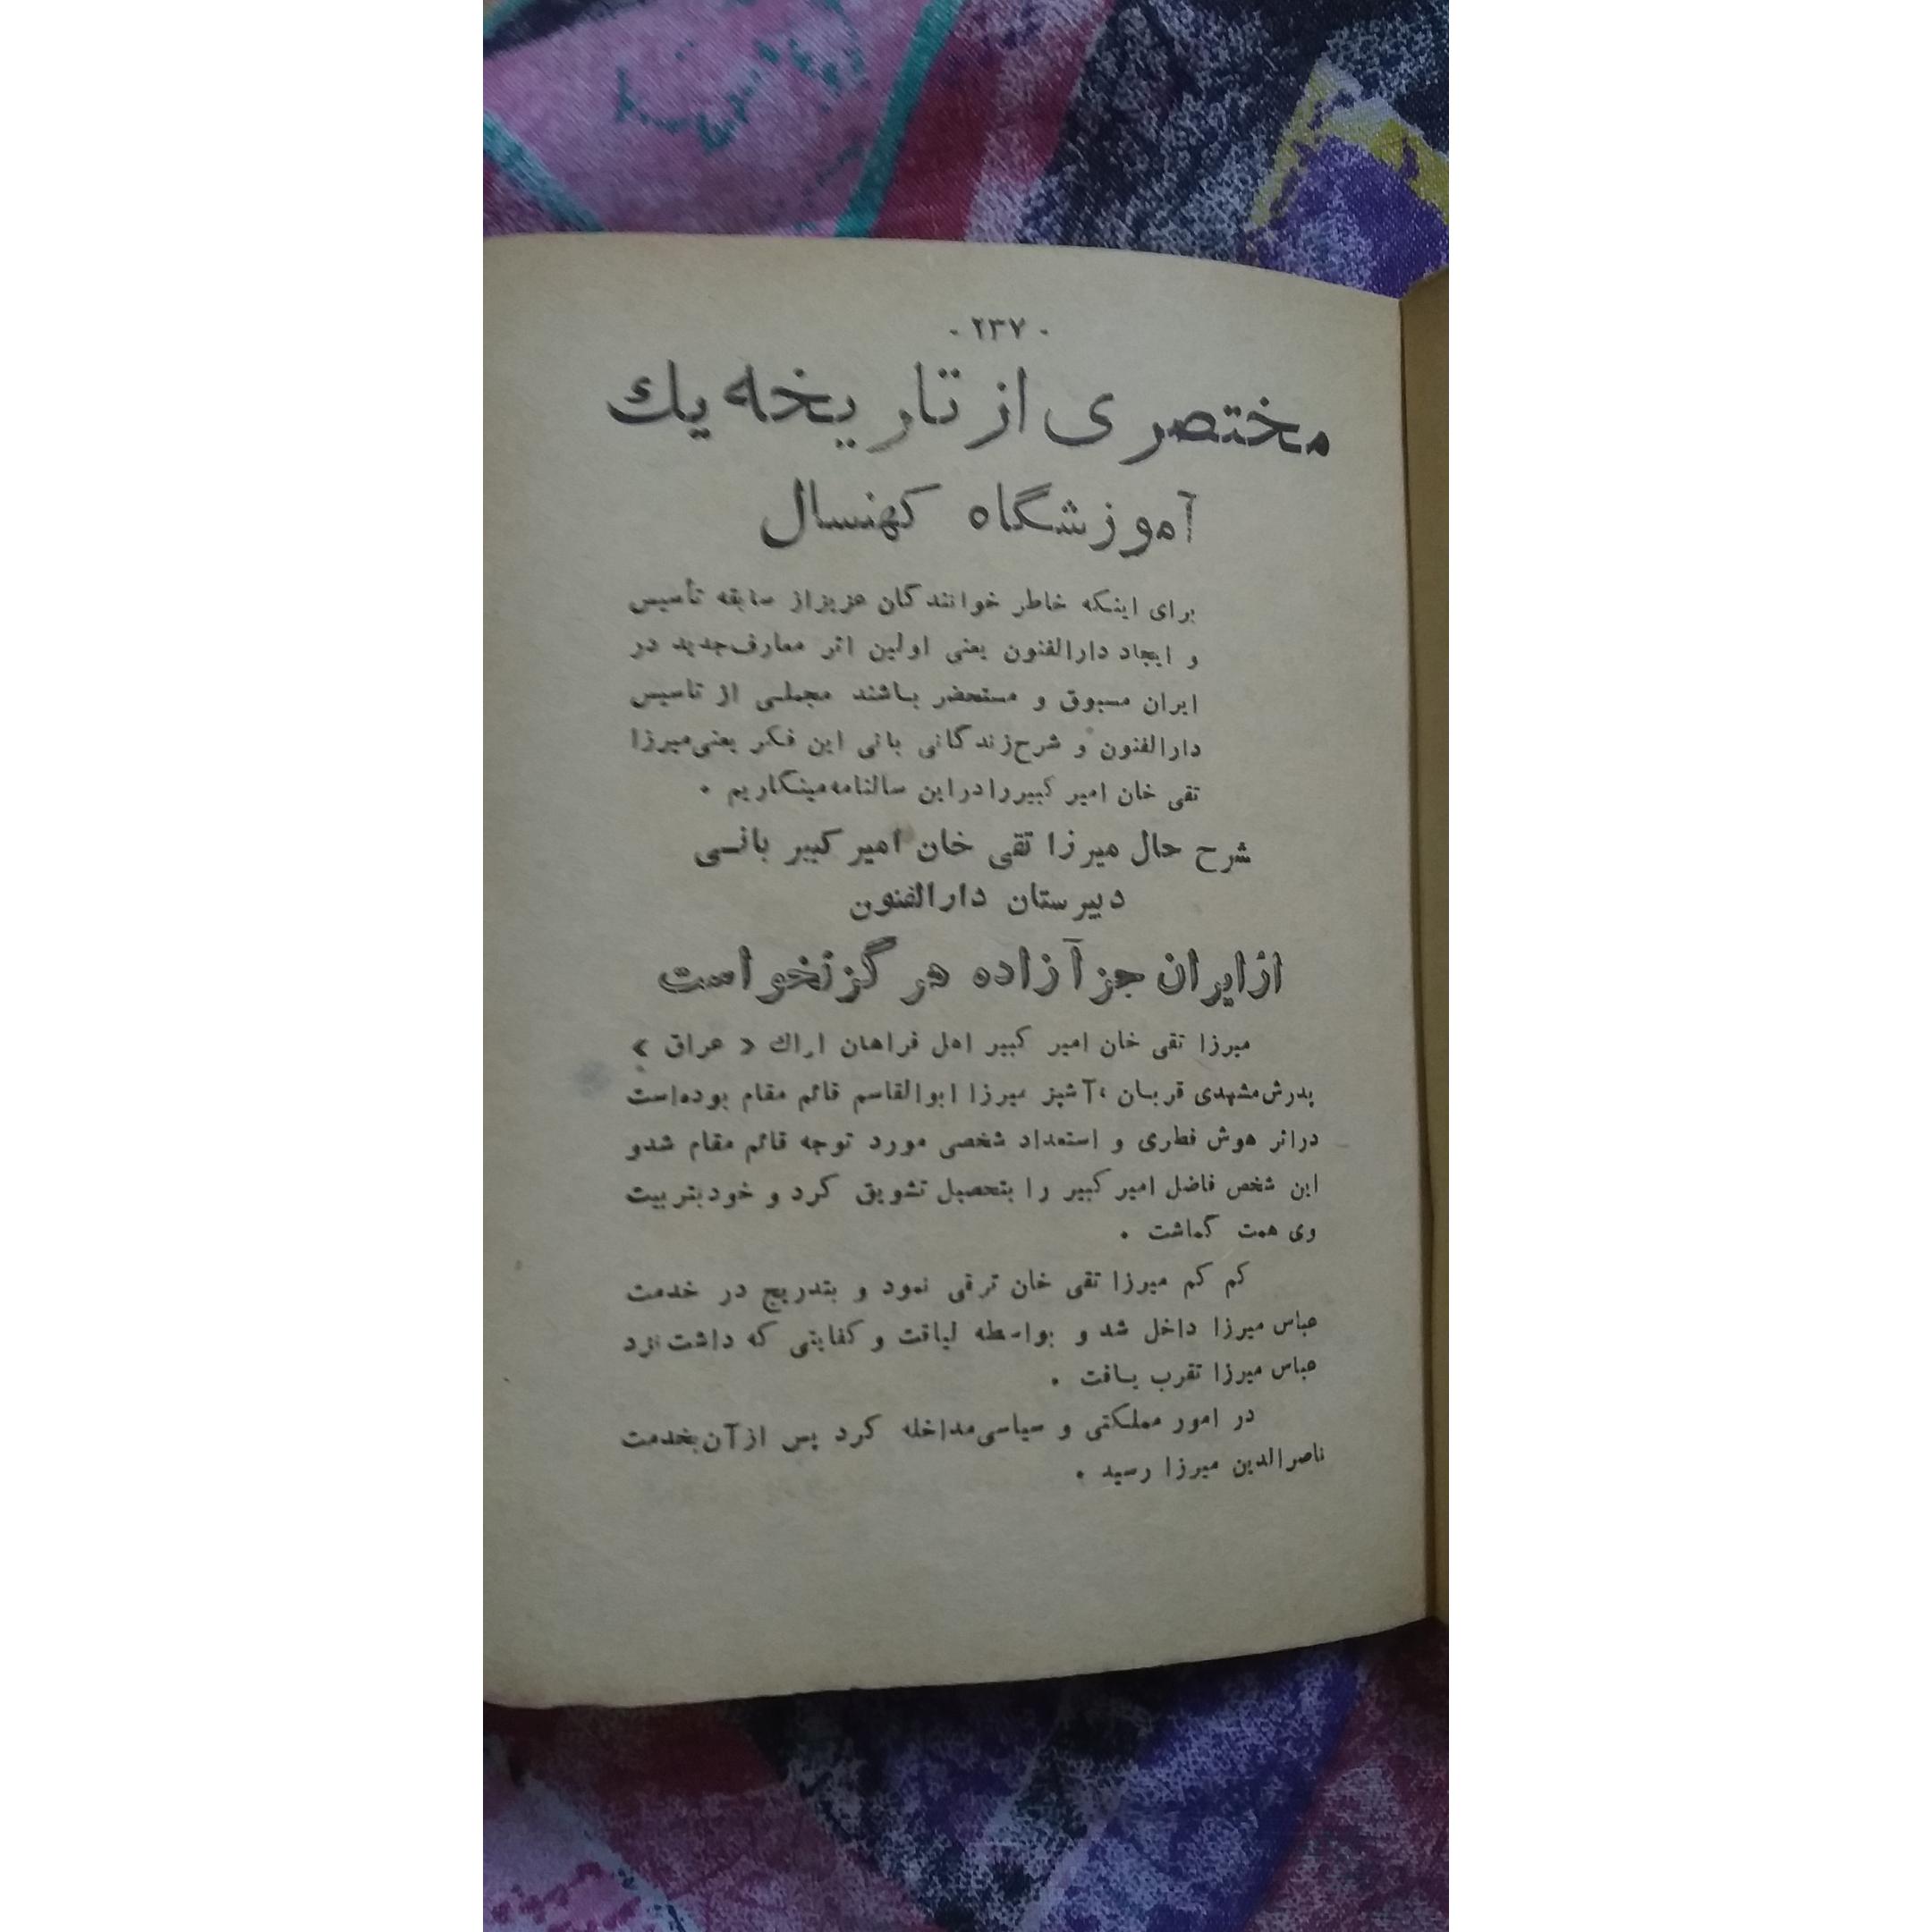 - ۲۳۷ -
مختصری از تاریخه یك
آموزشگاه کهنسال
برای اینکه خاطر خوانندگان عزیز از سابقه تأسیس
و ایجاد دارالفنون یعنی اولین اثر معارف جدید در
ایران مسبوق و مستحضر باشند مجملی از تاسیس
دارالفنون و شرح زندگانی بانی این فکر یعنی میرزا
تقی خان امیر کبیر را در این سالنامه مینگاریم .
شرح حال میرزا تقی خان امیر کبیر بانی
دبیرستان دارالفنون
از ایران جز آزاده هرگز نخواست
میرزا تقی خان امیر کبیر اهل فراهان اراك « عراق »
پدرش مشهدی قربان ، آشپز میرزا ابوالقاسم قائم مقام بوده است
در اثر هوش فطری و استعداد شخصی مورد توجه قائم مقام شد و
این شخص فاضل امیر کبیر را بتحصیل تشویق کرد و خود بتربیت
وی همت گماشت .
کم کم میرزا تقی خان ترقی نمود و بتدریج در خدمت
عباس میرزا داخل شد و بواسطه لیاقت و کفایتی که داشت نزد
عباس میرزا تقرب یافت .
در امور مملکتی و سیاسی مداخله کرد پس از آن بخدمت
ناصرالدین میرزا رسید .